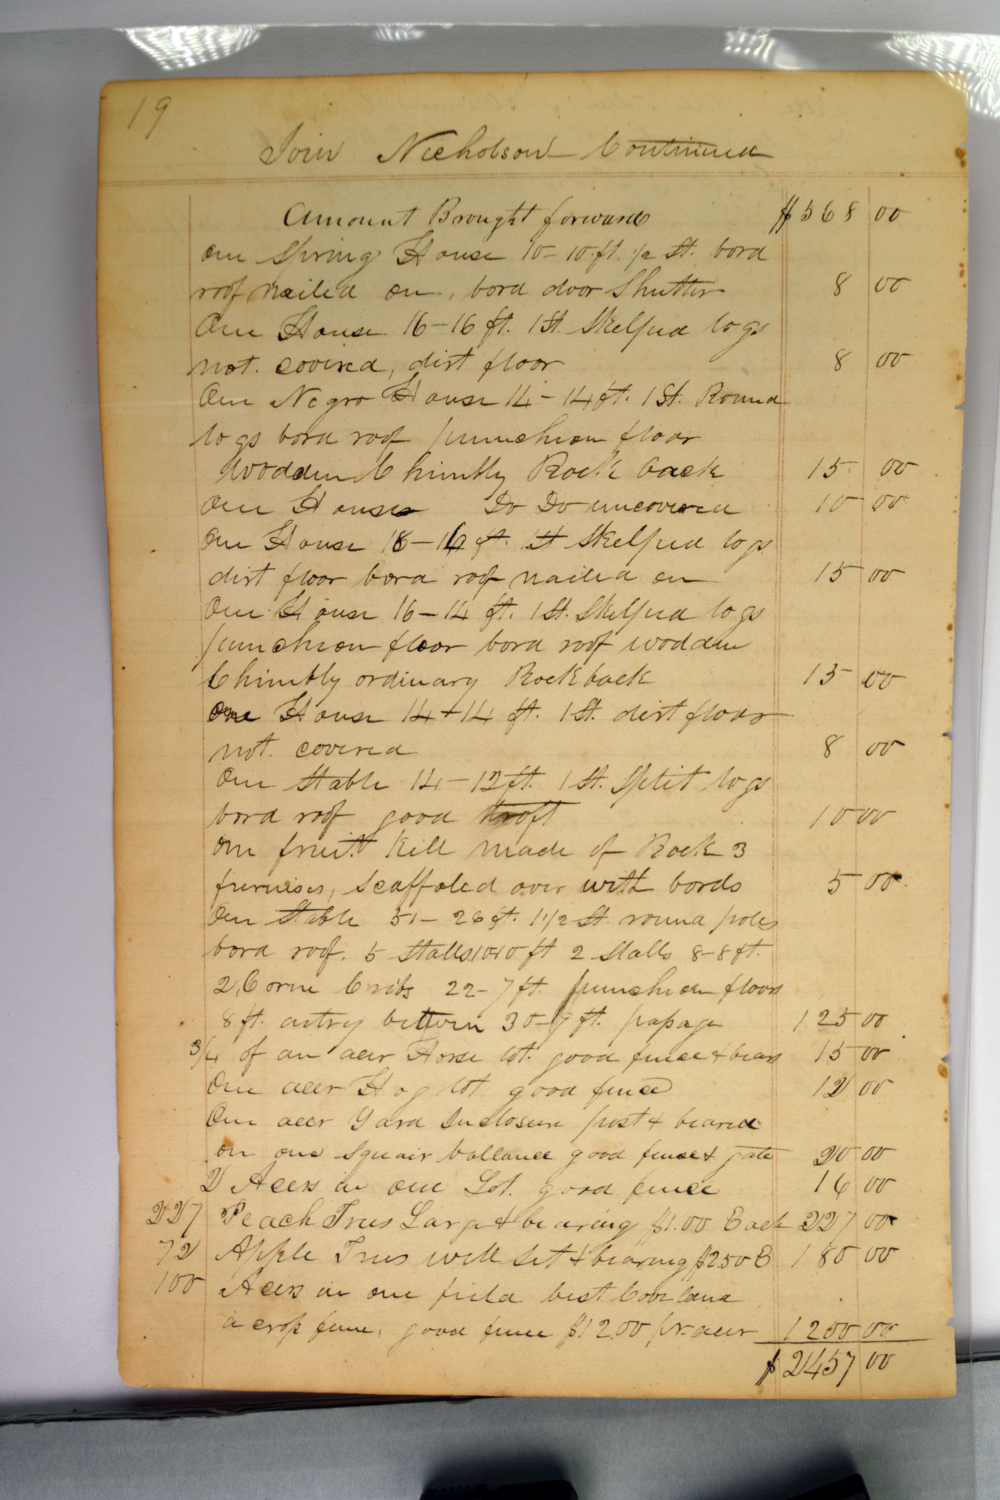 19
John Nicholson Continued
Amount Brought forward $568 00
One Spring House 10–10 ft. 1/2 St. bord
roof nailed on, bord door Shutter 8 00
One House 16–16 ft. 1 St. Skelped logs
not. covired, dirt floor 8 00
One Negro House 14–14 ft. 1 St. Round
logs bord roof puncheon floor
Wooden Chimbly Rock back 15 00
One House Do Do uncovered 10 00
One House 18–16 ft. 1 St Skelped logs
dirt floor bord roof nailed on 15 00
One House 16–14 ft. 1 St. Skelped logs
puncheon floor bord roof wodden
Chimbly ordinary Rock back 15 00
One House 14–14 ft. 1 St. dirt floor
not. covered 8 00
One Stable 14–12 ft. 1 St. Split logs
bord roof good troft 10 00
One fruit Kill made of Rock 3
furnises, Scaffoled over with bords 5 00
One Stable 51–26 ft. 1 1/2 St. round poles
bord roof. 5 Stalls 10 10 ft 2 Stalls 8–8 ft.
2 Corne Cribs 22–7 ft. puncheon floors
8 ft. entry between 30–9 ft. papage 125 00
3/4 of an acer Horse lot. good fence & bears 15 00
One acer Hog lot good fence 12 00
One acer Yard Inclosure post & beared
on one squair ballance good fence & gate 20 00
2 Acers in one Lot. good fence 16 00
227 Peach Trees Large & bearing $1.00 Each 227 00
72 Apple Trees well set & bearing $2.50 E 180 00
100 Acers in one field best Cove land
a crop fene, good fence $12.00 pr. acer 1200 00
$2457 00